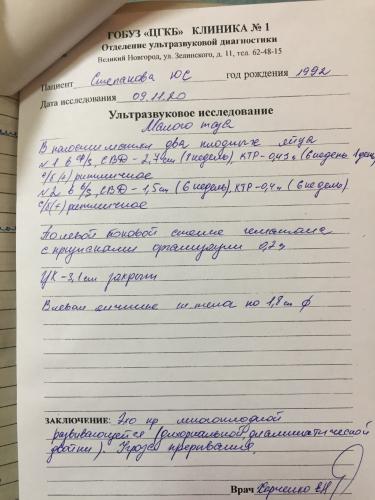 ГОБУЗ «ЦГКБ» КЛИНИКА № 1
Отделение ультразвуковой диагностики
Великий Новгород, ул. Зелинского, д. 11, тел. 62-48-15
Пациент Степанова ЮС год рождения 1992
Дата исследования 09.11.20
Ультразвуковое исследование
Малого таза
В полости матки два плодных яйца
№1 в СВД - 2,7 см (7 недель). КТР - 0,45 (6 недель 1 день)
с/б (+) ритмичное
№2 в СВД - 1,5 см (6 недель). КТР - 0,4 (6 недель)
с/б (+) ритмичное
По левой боковой стенке гематома
с признаками организации
ЦК - 3,1 см закрыт
В левом яичнике ж. тело по 1,8 см ф
ЗАКЛЮЧЕНИЕ: Эхо пр многоплодной
развивающейся (дихориальной диамниотической
двойни). Угроза прерывания.
Врач Харченко